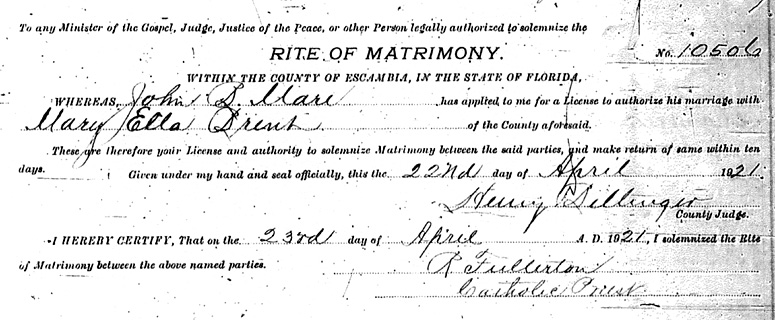 To any Minister of the Gospel, Judge, Justice of the Peace, or other Person legally authorized to solemnize the
RITE OF MATRIMONY.
No. 10506
WITHIN THE COUNTY OF ESCAMBIA, IN THE STATE OF FLORIDA,
WHEREAS, John S. Mare has applied to me for a License to authorize his marriage with
Mary Ella Brent of the County aforesaid.
These are therefore your License and authority to solemnize Matrimony between the said parties, and make return of same within ten
days. Given under my hand and seal officially, this the 22nd day of April 1921.
Henry Bellinger
County Judge.
I HEREBY CERTIFY, That on the 23rd day of April A. D. 1921, I solemnized the Rite
of Matrimony between the above named parties. R Fullerton
Catholic Priest